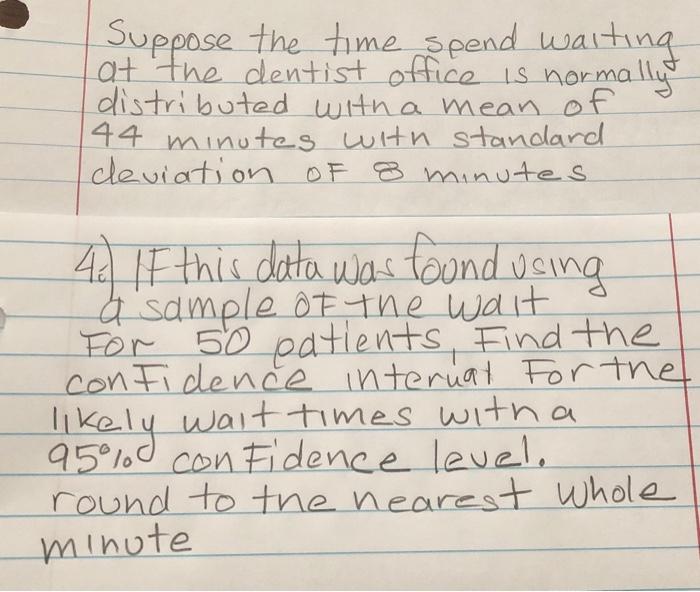 Suppose the time spend waiting
at the dentist office is normally
distributed with a mean of
44 minutes with standard
deviation of 8 minutes
4.) If this data was found using
a sample of the wait
For 50 patients, Find the
confidence interval For the
likely wait times with a
95% confidence level.
round to the nearest whole
minute